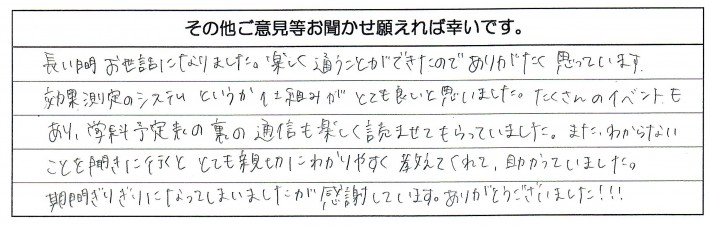 その他ご意見等お聞かせ願えれば幸いです。
長い間お世話になりました。楽しく通うことができたのでありがたく思っています。
効果測定のシステムというか仕組みがとても良いと思いました。たくさんのイベントも
あり、学科予定表の裏の通信も楽しく読ませてもらっていました。また、わからない
ことを聞きに行くととても親切にわかりやすく教えてくれて、助かっていました。
期間ぎりぎりになってしまいましたが感謝しています。ありがとうございました!!!